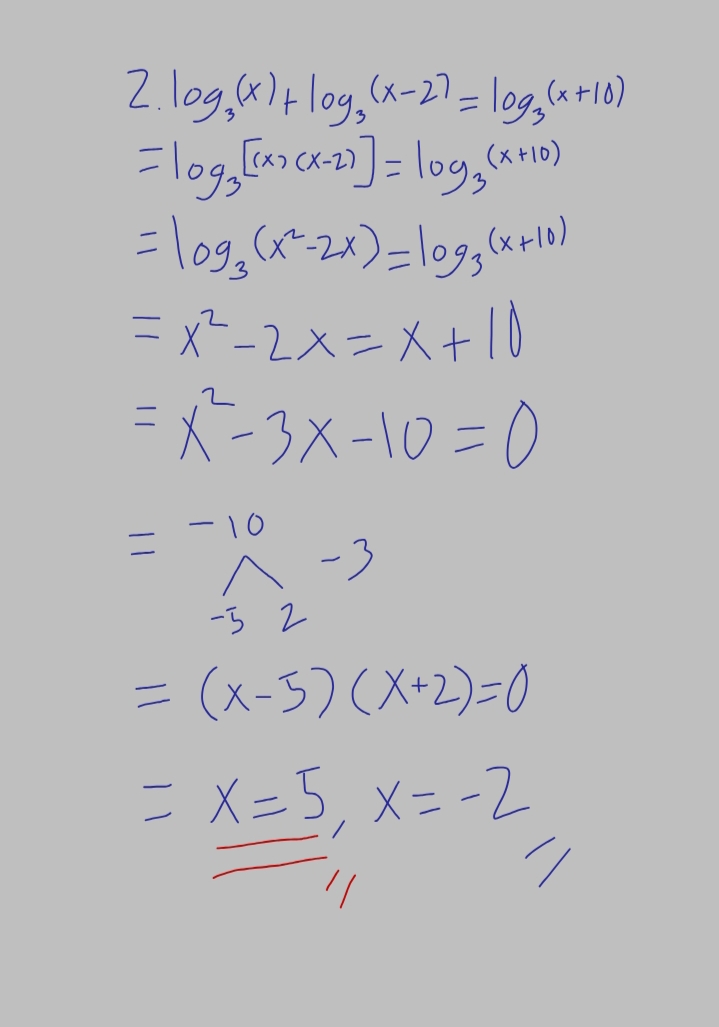 2. log₃(x) + log₃(x-2) = log₃(x+10)
= log₃[(x)(x-2)] = log₃(x+10)
= log₃(x²-2x) = log₃(x+10)
= x² - 2x = x + 10
= x² - 3x - 10 = 0
= -10
-3
-5 2
= (x-5)(x+2)=0
= x=5, x=-2